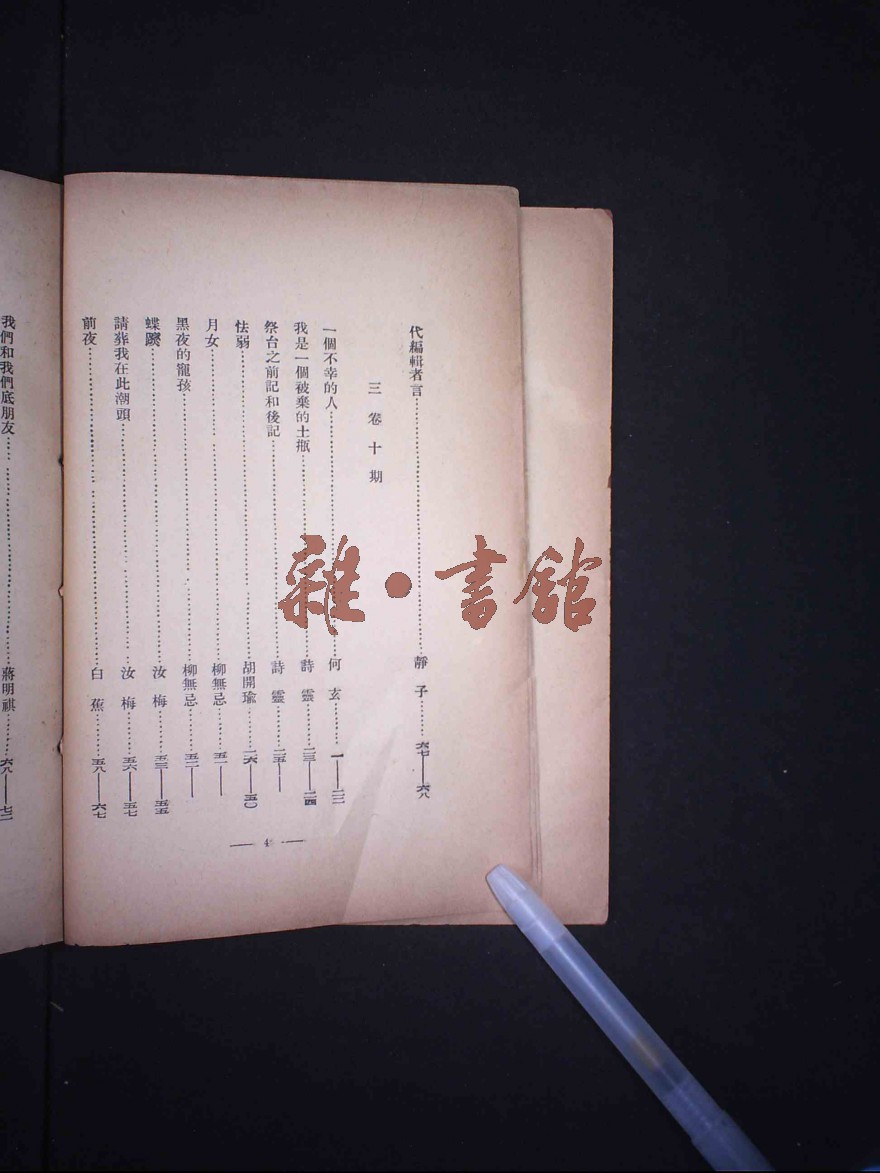 代編輯者言……靜子……六七——六八
三卷十期
一個不幸的人……何玄……一——二二
我是一個被棄的土瓶……詩靈……二三——二四
祭台之前記和後記……詩靈……二五——
怯弱……胡開瑜……二六——五〇
月女……柳無忌……五一——
黑夜的寵孩……柳無忌……五二——
蝶……汝梅……五三——五五
請葬我在此潮頭……汝梅……五六——五七
前夜……白蕉……五八——六七
— 4 —
我們和我們底朋友……蔣明祺……六八——七二
雜·書館